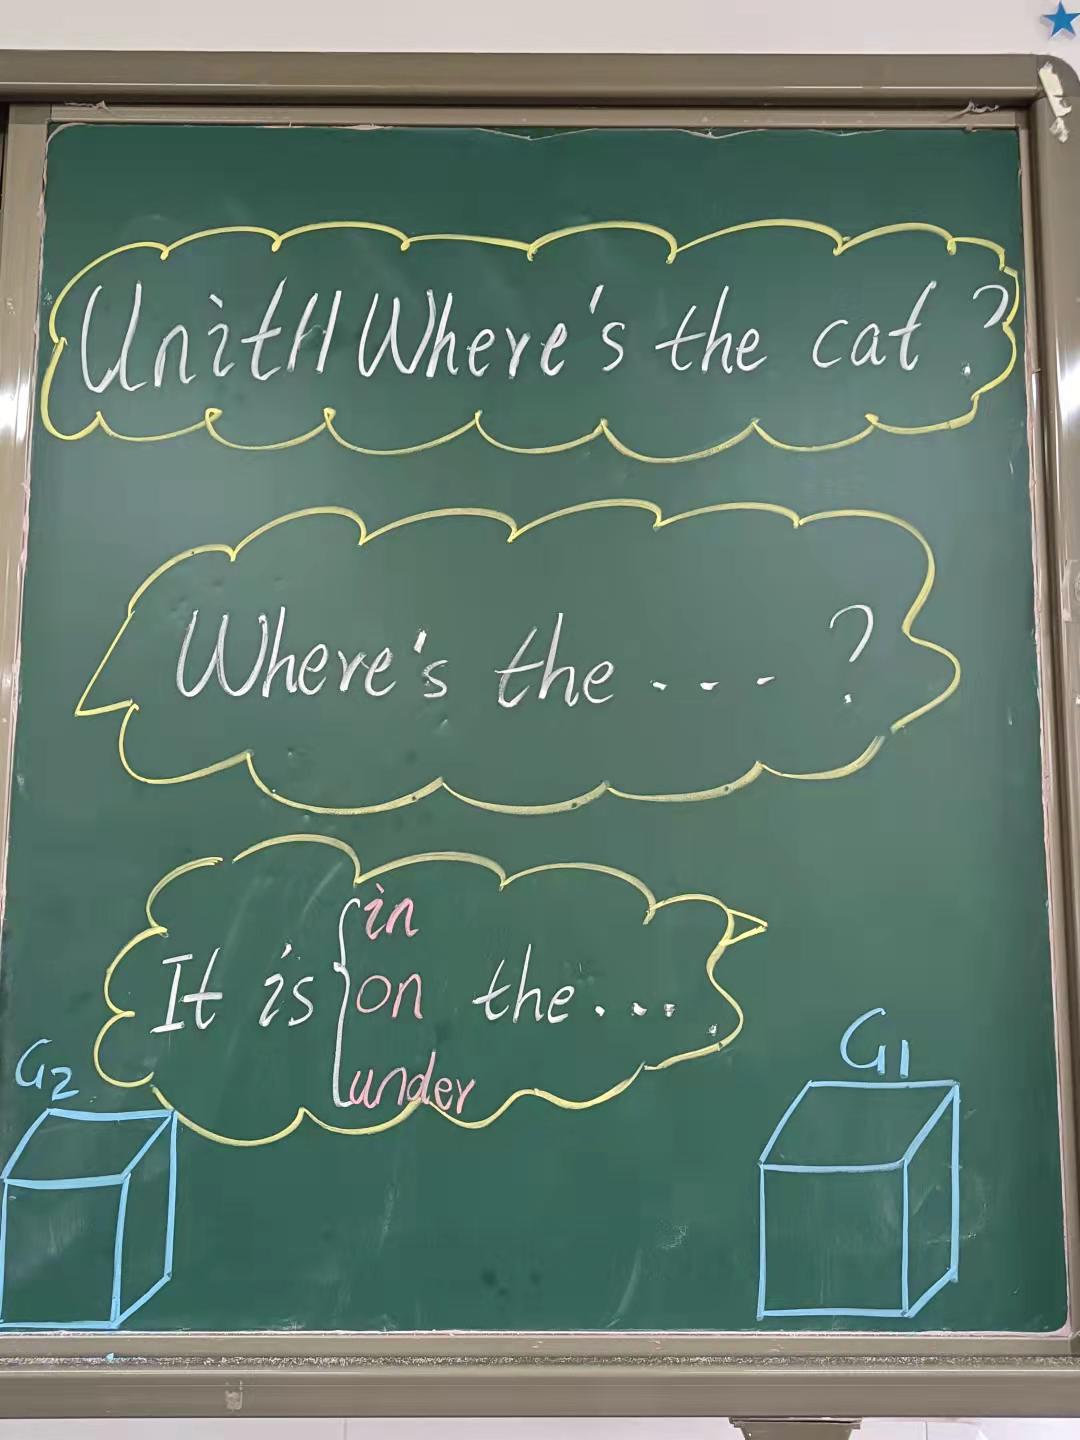 Unit11 Where's the cat?
Where's the ...?
in
It is on the...
under
G2
G1